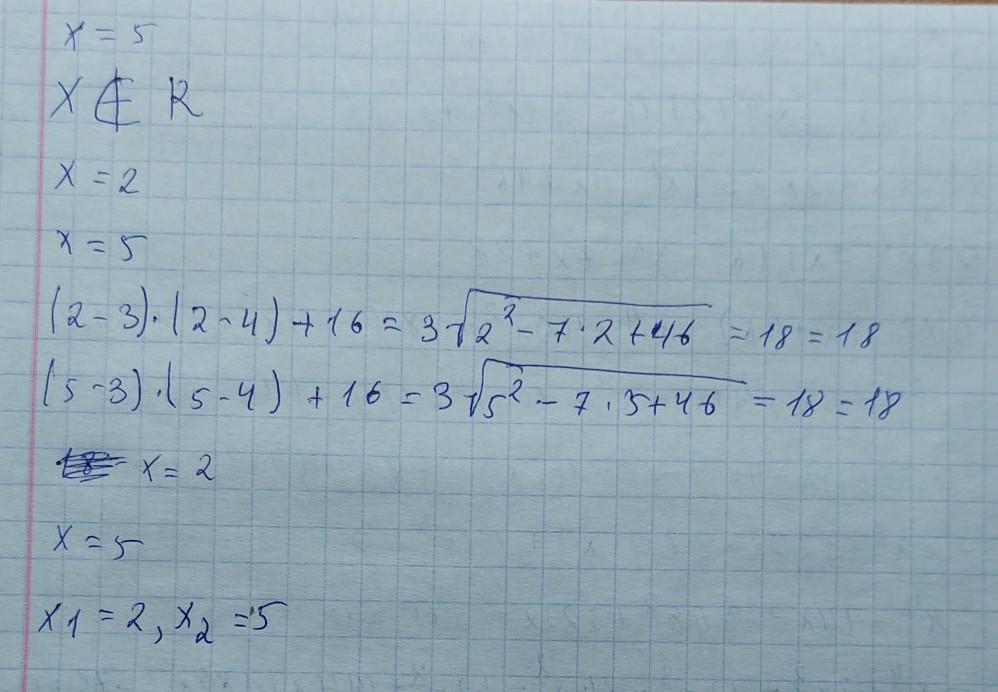 x = 5
x ∉ R
x = 2
x = 5
(2-3)·(2-4)+16 = 3√2²-7·2+46 = 18 = 18
(5-3)·(5-4)+16 = 3√5²-7·5+46 = 18 = 18
x = 2
x = 5
x1 = 2, x2 = 5